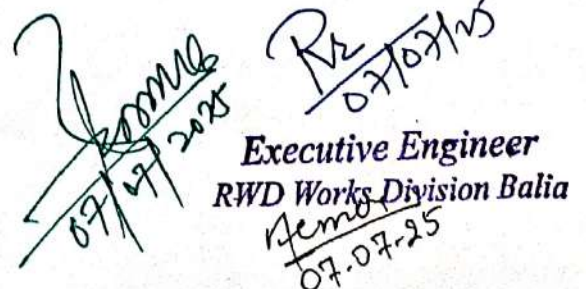 07/07/2025
07/07/25
Executive Engineer
RWD Works Division Balia
07.07.25